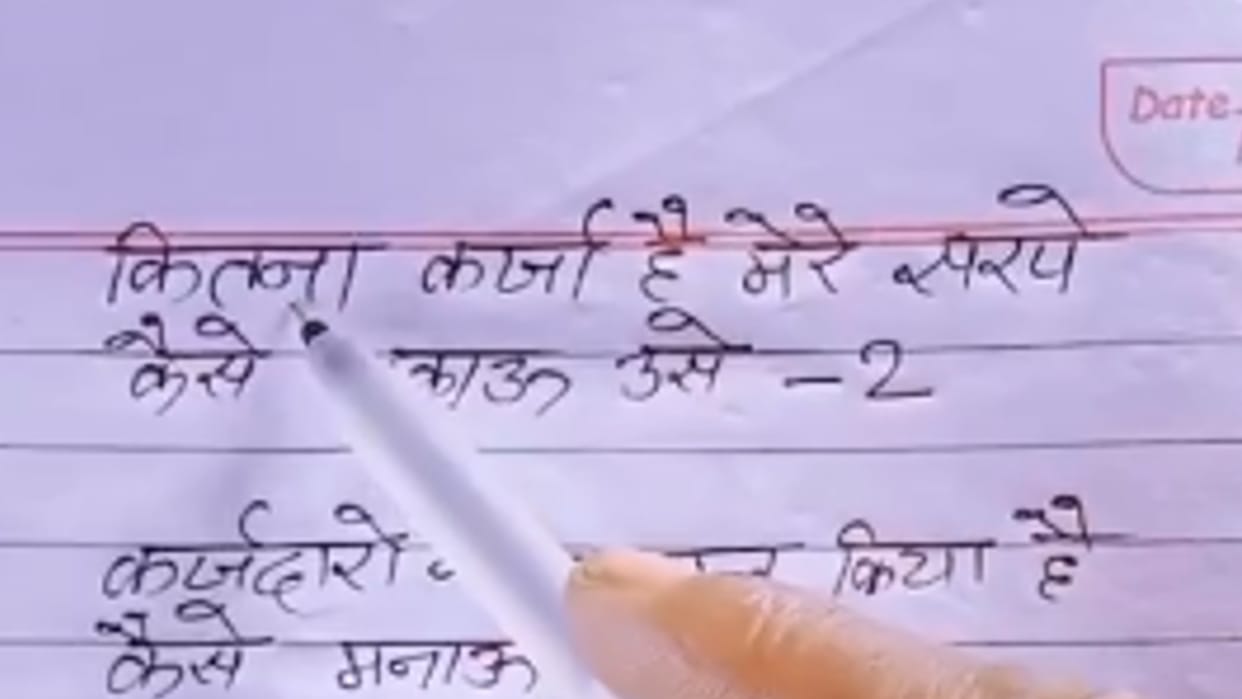 Date.
कितना कर्जा है मेरे सरपे
कैसे उसे -2
कर्जदारो किया है
कैसे मनाऊ